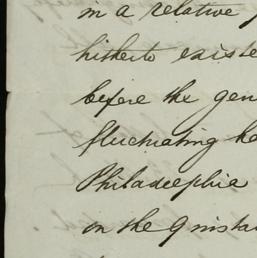 in a relative
hitherto existe
before the gen
fluctuating he
Philadelphia
on the 9 insta